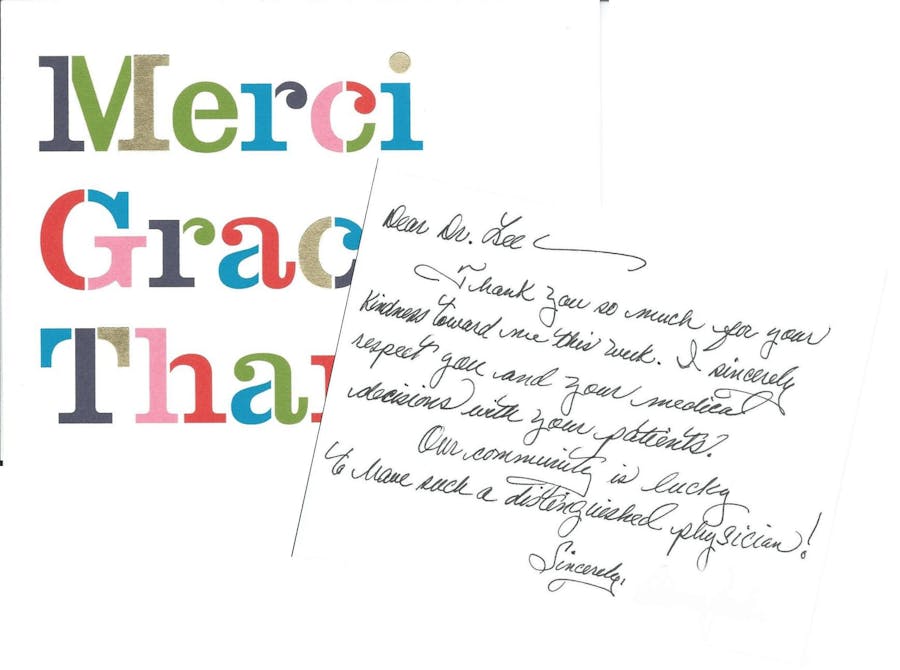 Merci
Grac
Than
Dear Dr. Lee
Thank you so much for your
kindness toward me this week. I sincerely
respect you and your medical
decisions with your patients.
Our community is lucky
to have such a distinguished physician!
Sincerely,